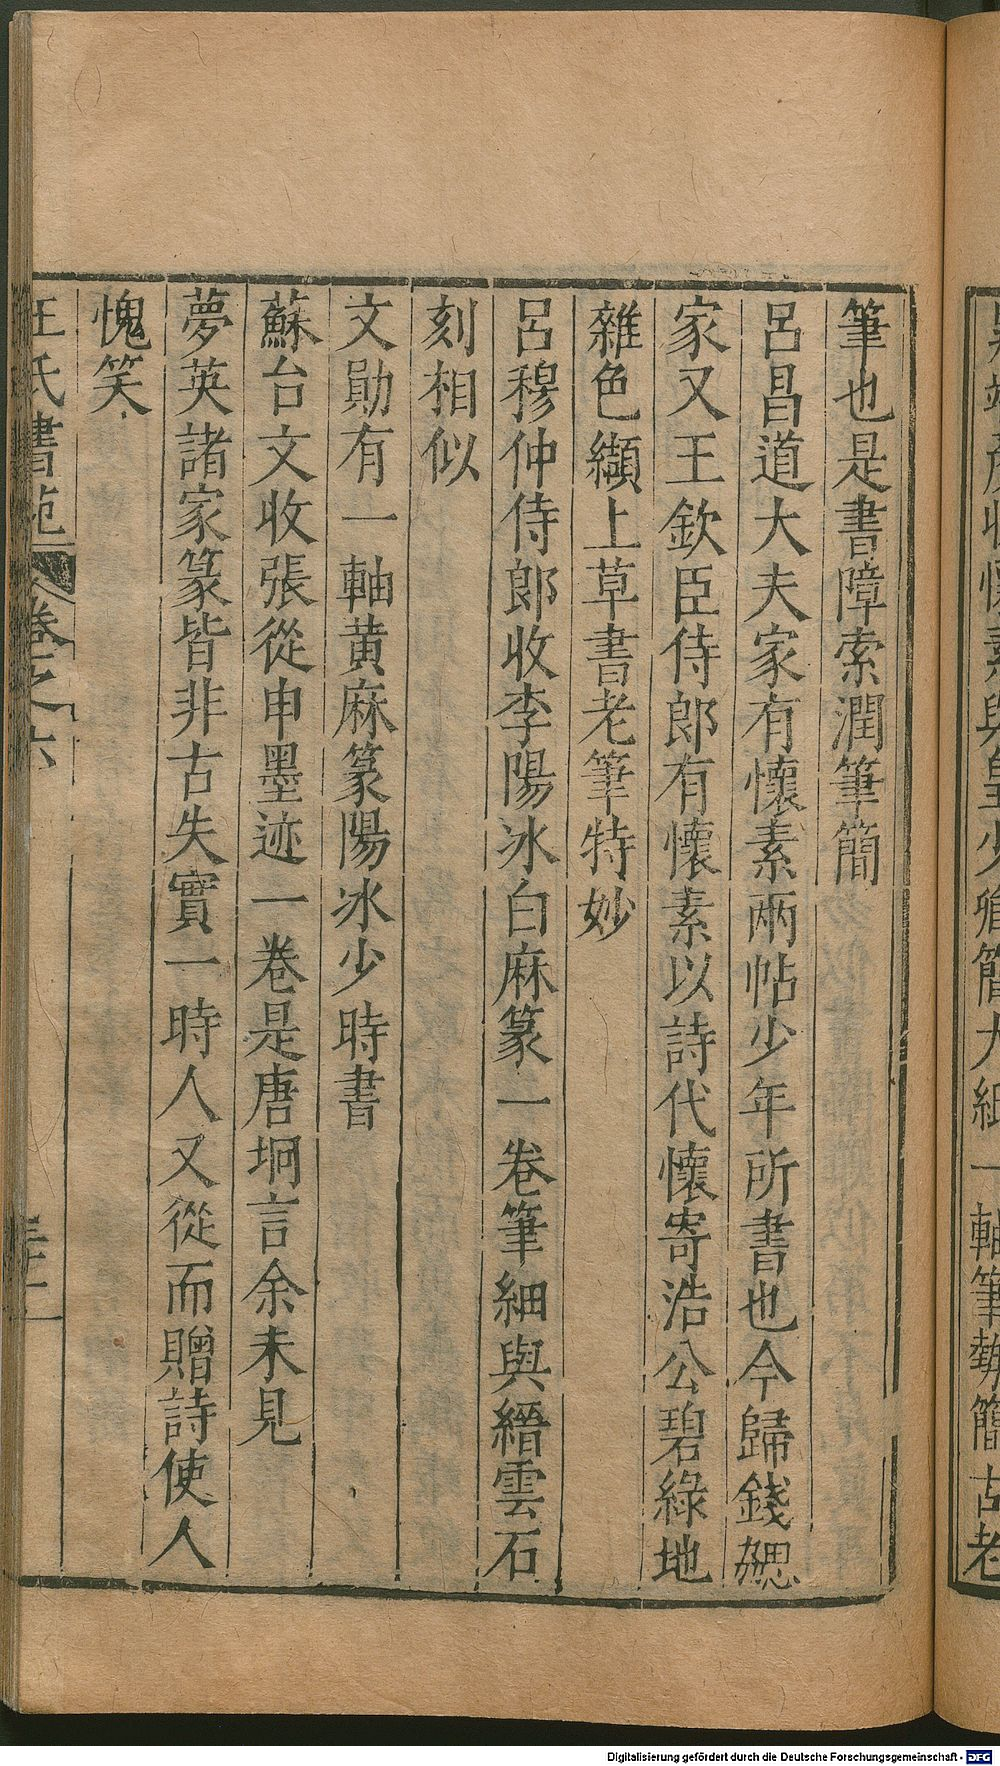 筆也是書障索潤筆簡
呂昌道大夫家有懷素兩帖少年所書也今歸錢勰
家又王欽臣侍郎有懷素以詩代懷寄浩公碧綠地
雜色纈上草書老筆特妙
呂穆仲侍郎收李陽冰白麻篆一卷筆細與縉雲石
刻相似
文勛有一軸黄麻篆陽冰少時書
蘇台文收張從申墨迹一卷是唐坰言余未見
夢英諸家篆皆非古失實一時人又從而贈詩使人
愧笑
王氏書苑 卷之六
懷素與 少卿簡大紙一軸筆勢簡古老
Digitalisierung gefördert durch die Deutsche Forschungsgemeinschaft - DFG